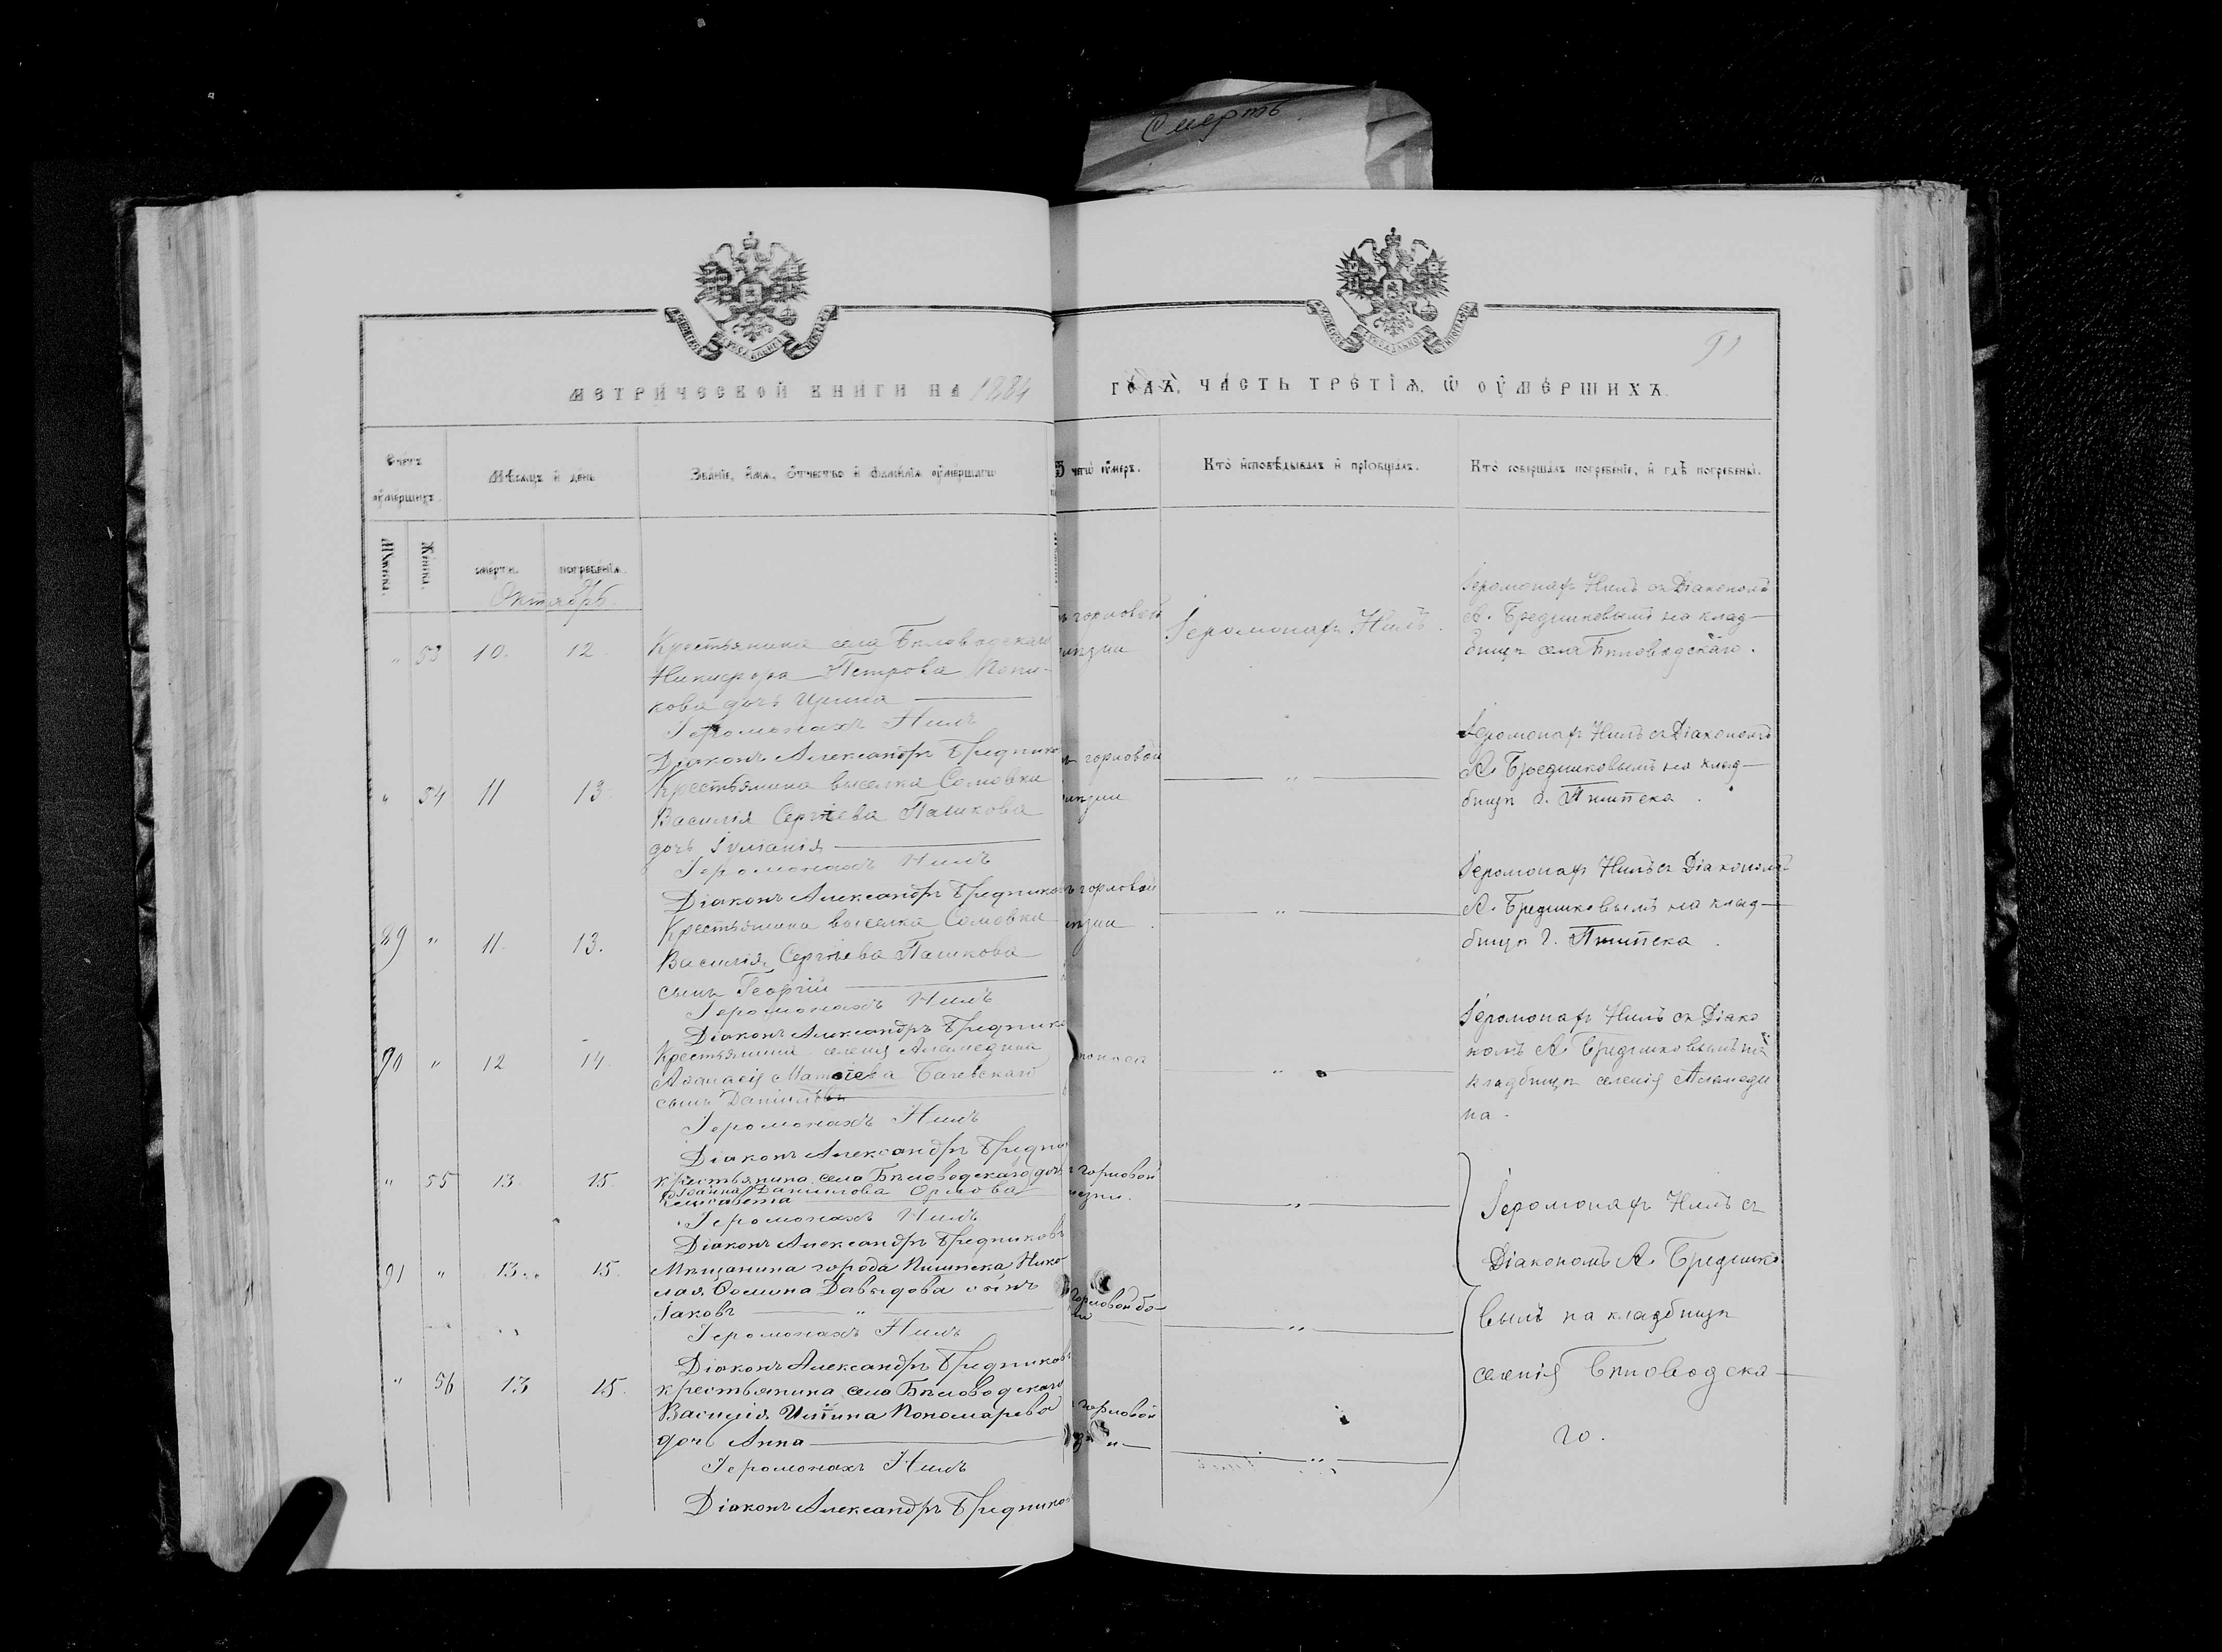 Смерть.
91
МЕТРИЧЕСКОЙ КНИГИ НА 1884
ГОДЪ, ЧАСТЬ ТРЕТІЯ, Ѿ ОУМЕРШИХЪ.
Счетъ оумершихъ.
Мѣсяцъ и день
Званіе, имя, отчество и фамилія оумершаго
чегѡ оумеръ.
Кто исповѣдывалъ и пріобщалъ.
Кто совершалъ погребеніе, и гдѣ погребены.
Мужеска.
Женска.
смерти.
погребенія.
Октябрь.
" 53 10. 12
Крестьянина села Бѣловодскаго
Никифора Петрова Попи-
кова дочь Ирина
Іеромонахъ Нилъ
Діаконъ Александръ Бредников
горловой
Іеромонахъ Нилъ.
Іеромонахъ Нилъ съ Діакономъ
А. Бредниковымъ на клад-
бищѣ села Бѣловодскаго.
" 54 11 13.
Крестьянина выселка Сомовки
Василія Сергѣева Пашкова
дочь Іуліанія
Іеромонахъ Нилъ
Діаконъ Александръ Бредников
горловой
"
Іеромонахъ Нилъ съ Діакономъ
А. Бредниковымъ на клад-
бищѣ г. Пишпека.
89 " 11. 13.
Крестьянина выселка Сомовки
Василія Сергѣева Пашкова
сынъ Георгій
Іеромонахъ Нилъ
Діаконъ Александръ Бреднико
горловой
"
Іеромонахъ Нилъ съ Діакономъ
А. Бредниковымъ на клад-
бищѣ г. Пишпека.
90 " 12 14
Крестьянина селенія Аламедина
Аѳанасія Матѳеева Бачевскаго
сынъ Даніилъ
Іеромонахъ Нилъ
Діаконъ Александръ Бредни
"
Іеромонахъ Нилъ съ Діако
номъ А. Бредниковымъ на
кладбищѣ селенія Аламеди
на.
" 55 13 15
крестьянина села Бѣловодскаго дочь
Іоанна Данилова Орлова
Елисавета
Іеромонахъ Нилъ
Діаконъ Александръ Бредниковъ
горловой
"
91 " 13 15
Мѣщанина города Пишпека Нико
лая Ѳомина Давыдова сынъ
Іаковъ "
Іеромонахъ Нилъ
Діаконъ Александръ Бредников
горловой бо-
"
" 56 13 15.
крестьянина села Бѣловодскаго
Василія Ильина Пономарева
дочь Анна
Іеромонахъ Нилъ
Діаконъ Александръ Бредников
горловой
"
Іеромонахъ Нилъ съ
Діакономъ А. Бреднико
вымъ на кладбищѣ
селенія Бѣловодска-
го.